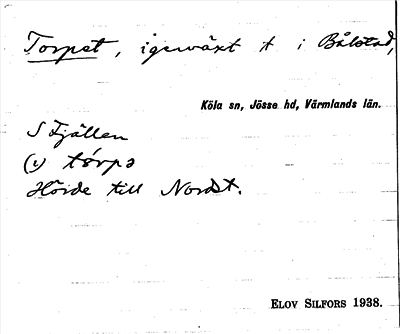 Torpet, igenväxt t i Bålstad,
Köla sn, Jösse hd, Värmlands län.
S Fjällen
(v) tórpə
Hörde till Nordst.
ELOV SILFORS 1938.